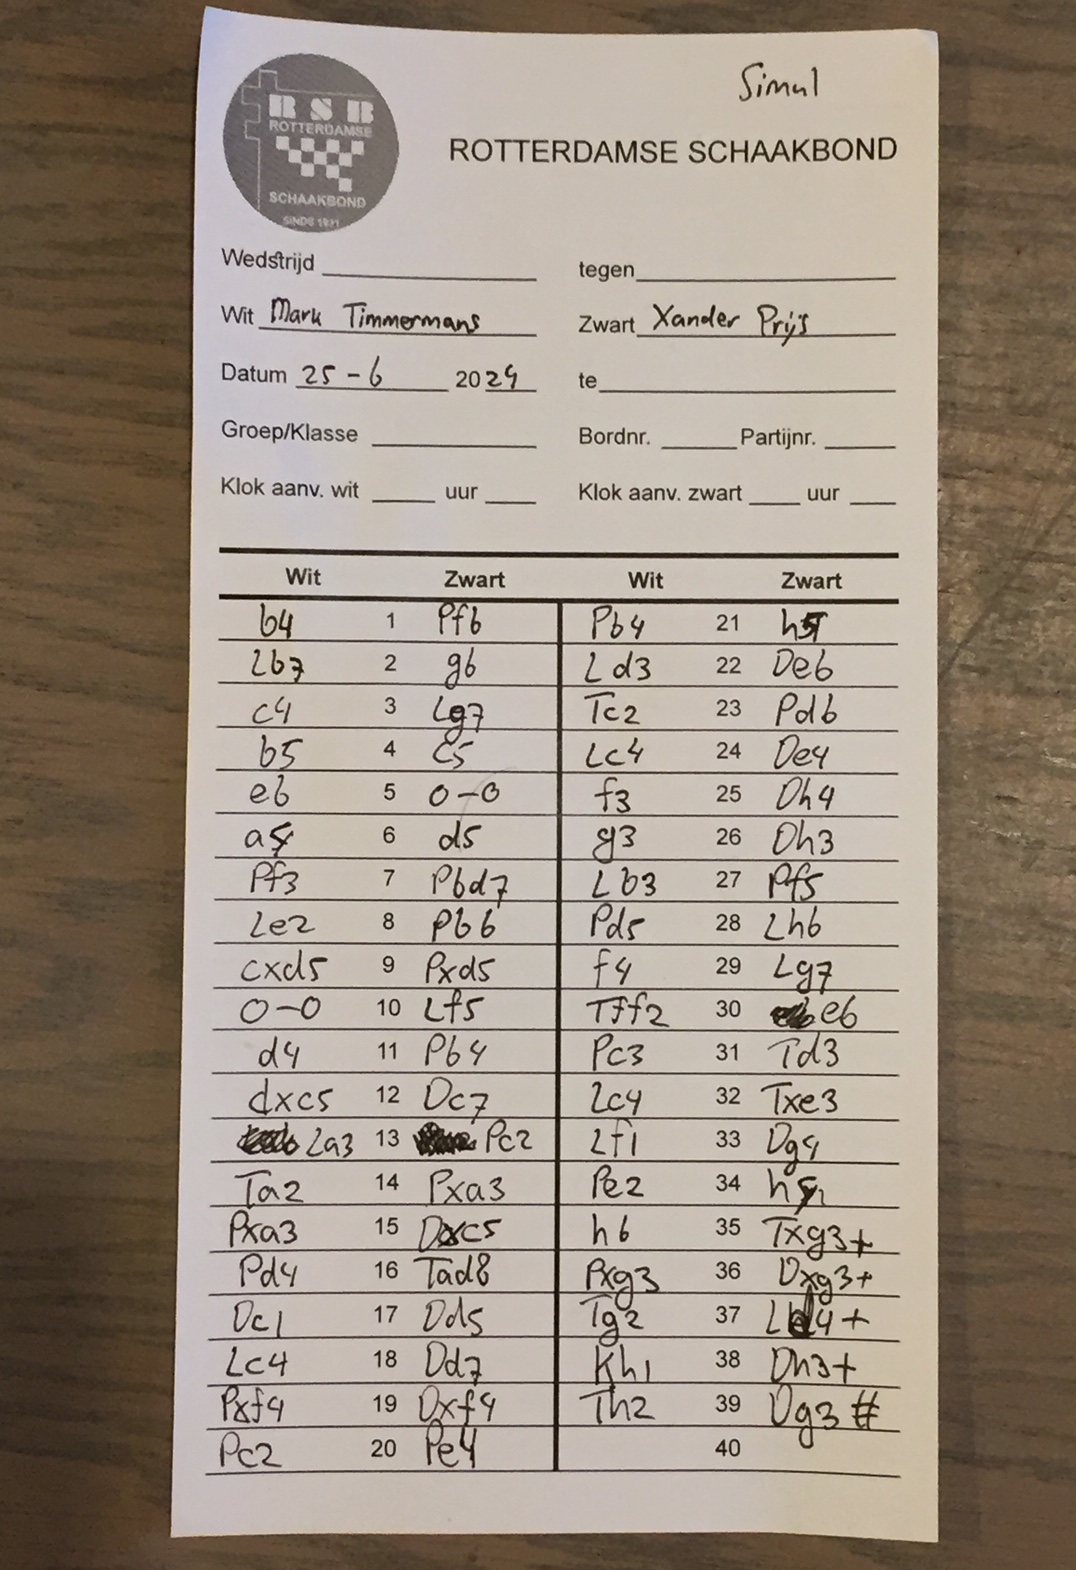 Simul
RSB
ROTTERDAMSE
SCHAAKBOND
SINDS 1931
ROTTERDAMSE SCHAAKBOND
Wedstrijd tegen
Wit Mark Timmermans Zwart Xander Prijs
Datum 25-6 2024 te
Groep/Klasse Bordnr. Partijnr.
Klok aanv. wit uur Klok aanv. zwart uur
Wit Zwart Wit Zwart
b4 1 Pf6 Pb4 21 h5
Lb7 2 g6 Ld3 22 De6
c4 3 Lg7 Tc2 23 Pd6
b5 4 c5 Lc4 24 De4
e6 5 0-0 f3 25 Dh4
a4 6 d5 g3 26 Dh3
Pf3 7 Pbd7 Lb3 27 Pf5
Le2 8 Pb6 Pd5 28 Lh6
cxd5 9 Pxd5 f4 29 Lg7
0-0 10 Lf5 Tff2 30 e6
d4 11 Pb4 Pc3 31 Td3
dxc5 12 Dc7 Lc4 32 Txe3
La3 13 Pc2 Lf1 33 Dg4
Ta2 14 Pxa3 Pe2 34 h4
Pxa3 15 Dxc5 h6 35 Txg3+
Pd4 16 Tad8 Pxg3 36 Dxg3+
Dc1 17 Dd5 Tg2 37 Ld4+
Lc4 18 Dd7 Kh1 38 Dh3+
Pxf4 19 Dxf4 Th2 39 Dg3#
Pc2 20 Pe4 40